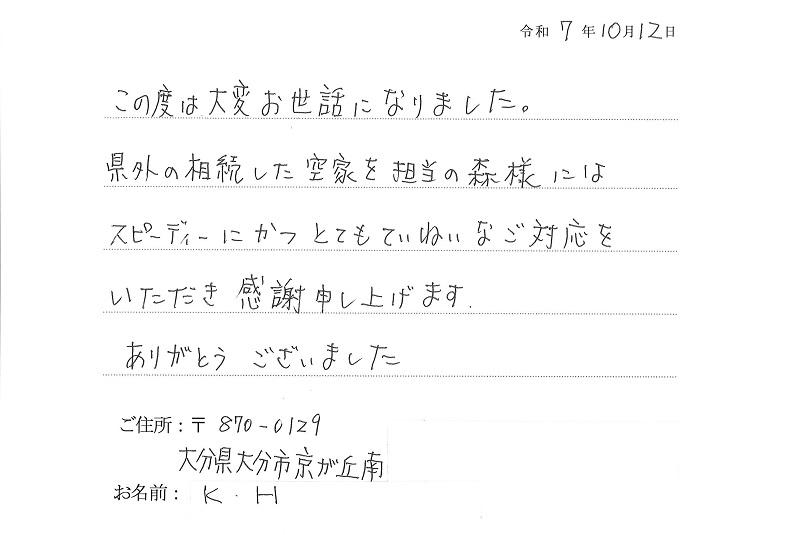 令和 7 年 10月 12日
この度は大変お世話になりました。
県外の相続した空家を担当の森様には
スピーディーにかつとてもていねいなご対応を
いただき感謝申し上げます.
ありがとうございました
ご住所：〒 870-0129
大分県大分市京が丘南
お名前： K . H